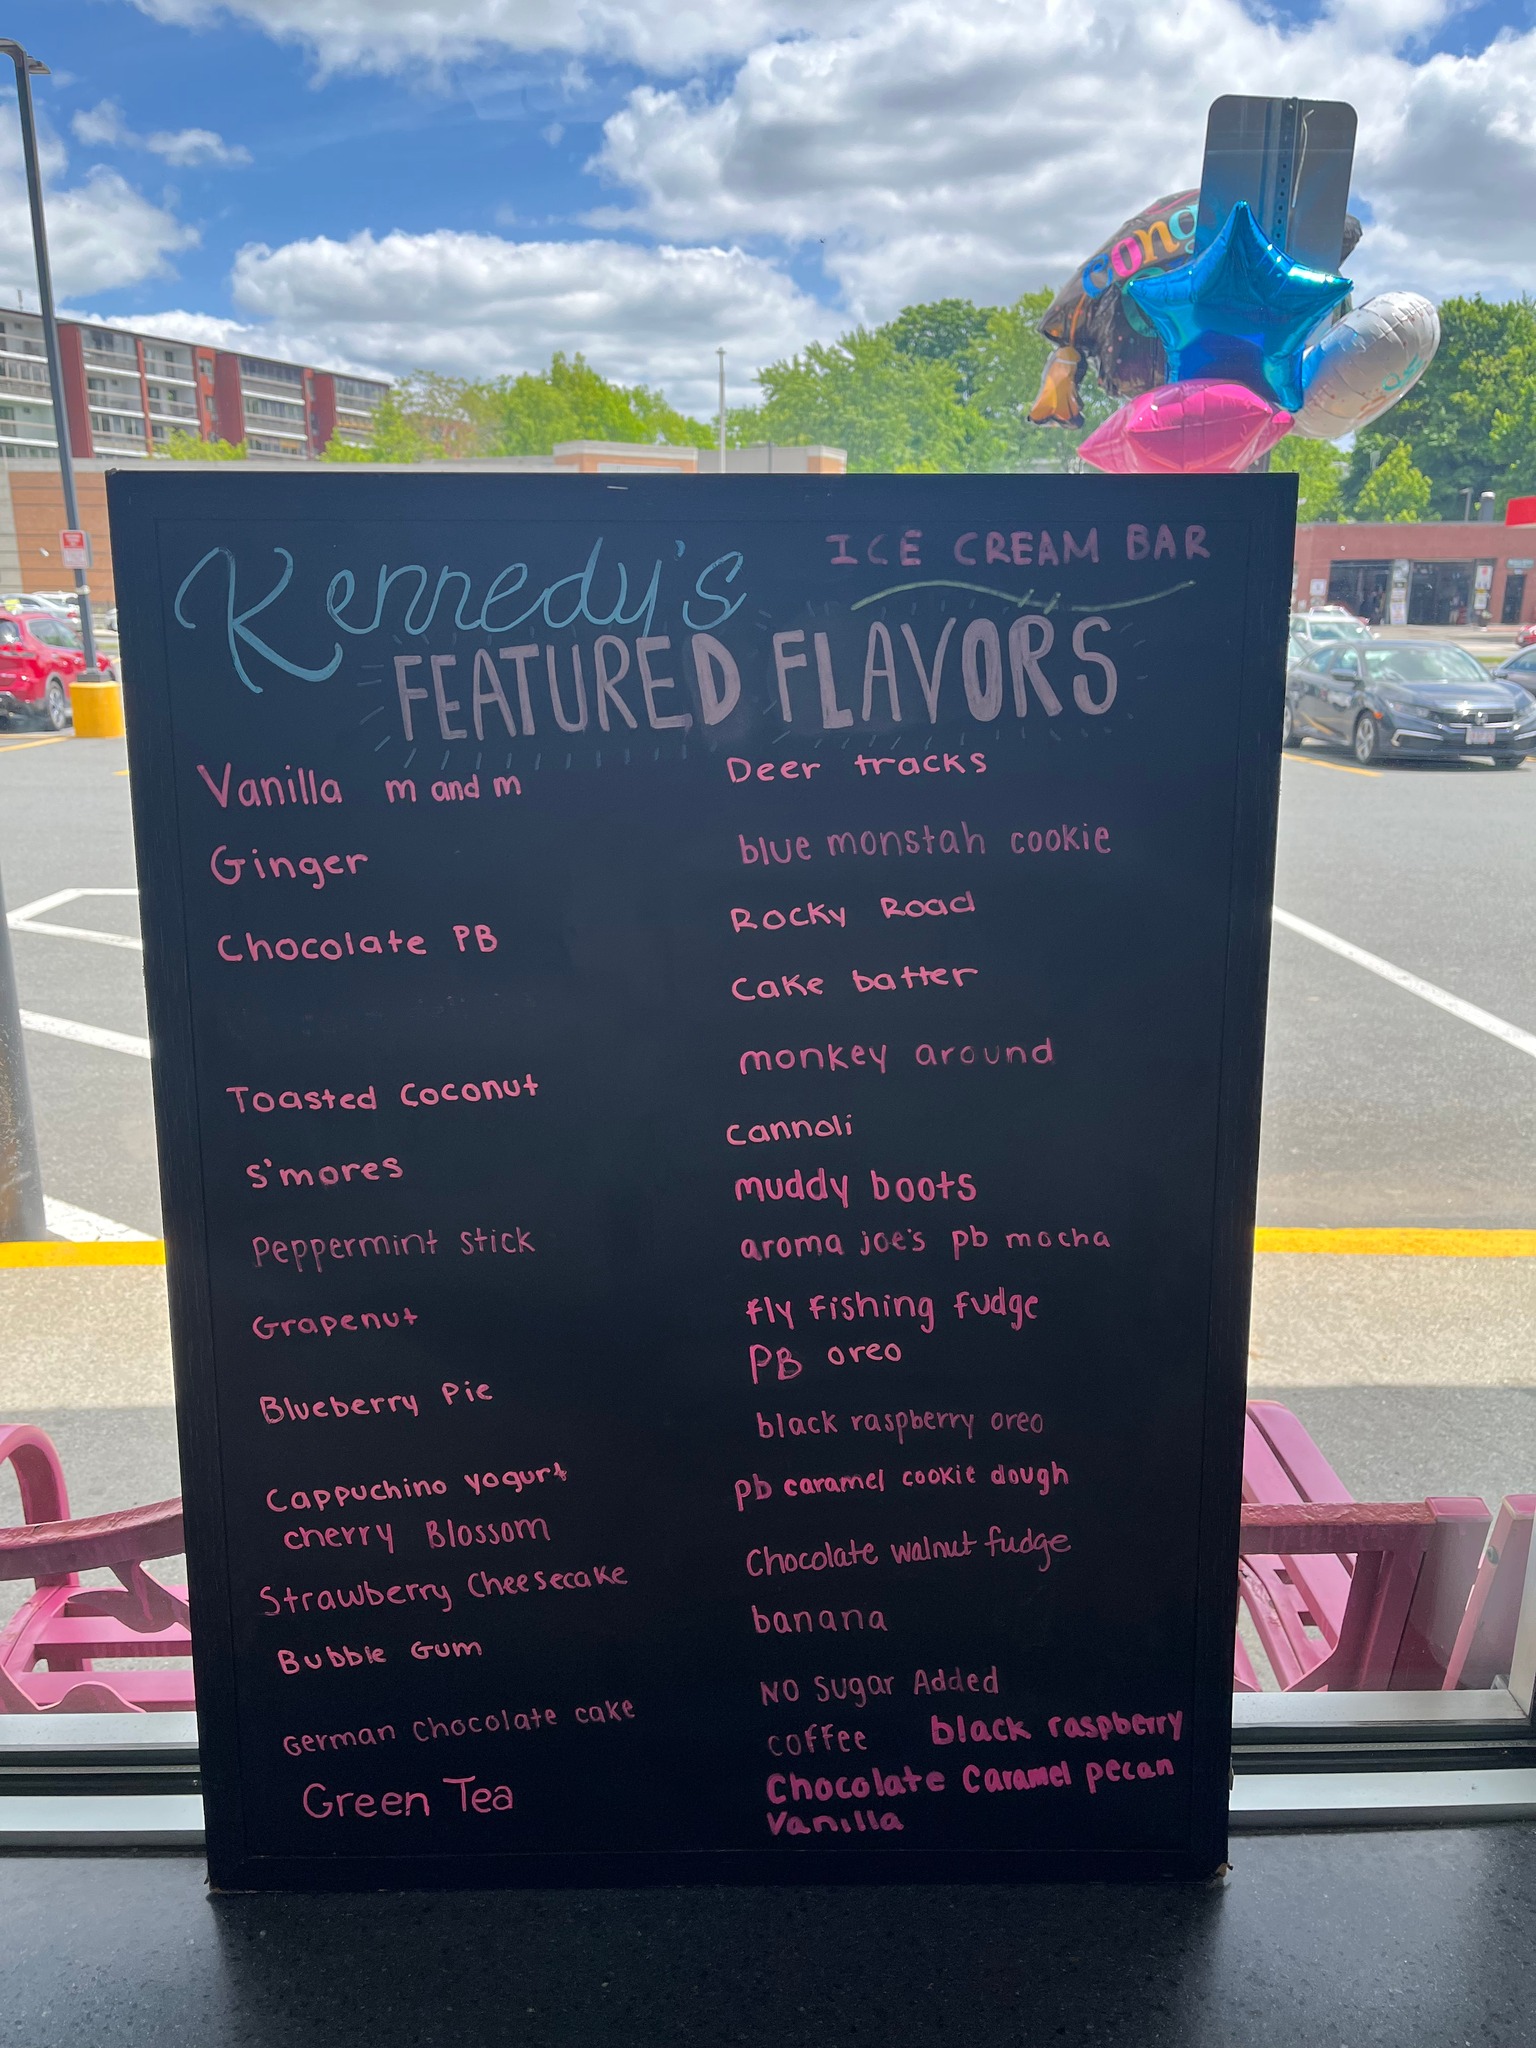 Cong
Kennedy's
ICE CREAM BAR
FEATURED FLAVORS
Vanilla m and m
Ginger
Chocolate PB
Toasted Coconut
S'mores
Peppermint stick
Grapenut
Blueberry Pie
Cappuchino yogurt
cherry Blossom
Strawberry Cheesecake
Bubble Gum
German Chocolate cake
Green Tea
Deer tracks
blue monstah cookie
Rocky Road
Cake batter
monkey around
cannoli
muddy boots
aroma joe's pb mocha
fly fishing fudge
PB oreo
black raspberry oreo
pb caramel cookie dough
Chocolate walnut fudge
banana
NO Sugar Added
coffee black raspberry
Chocolate Caramel pecan
Vanilla